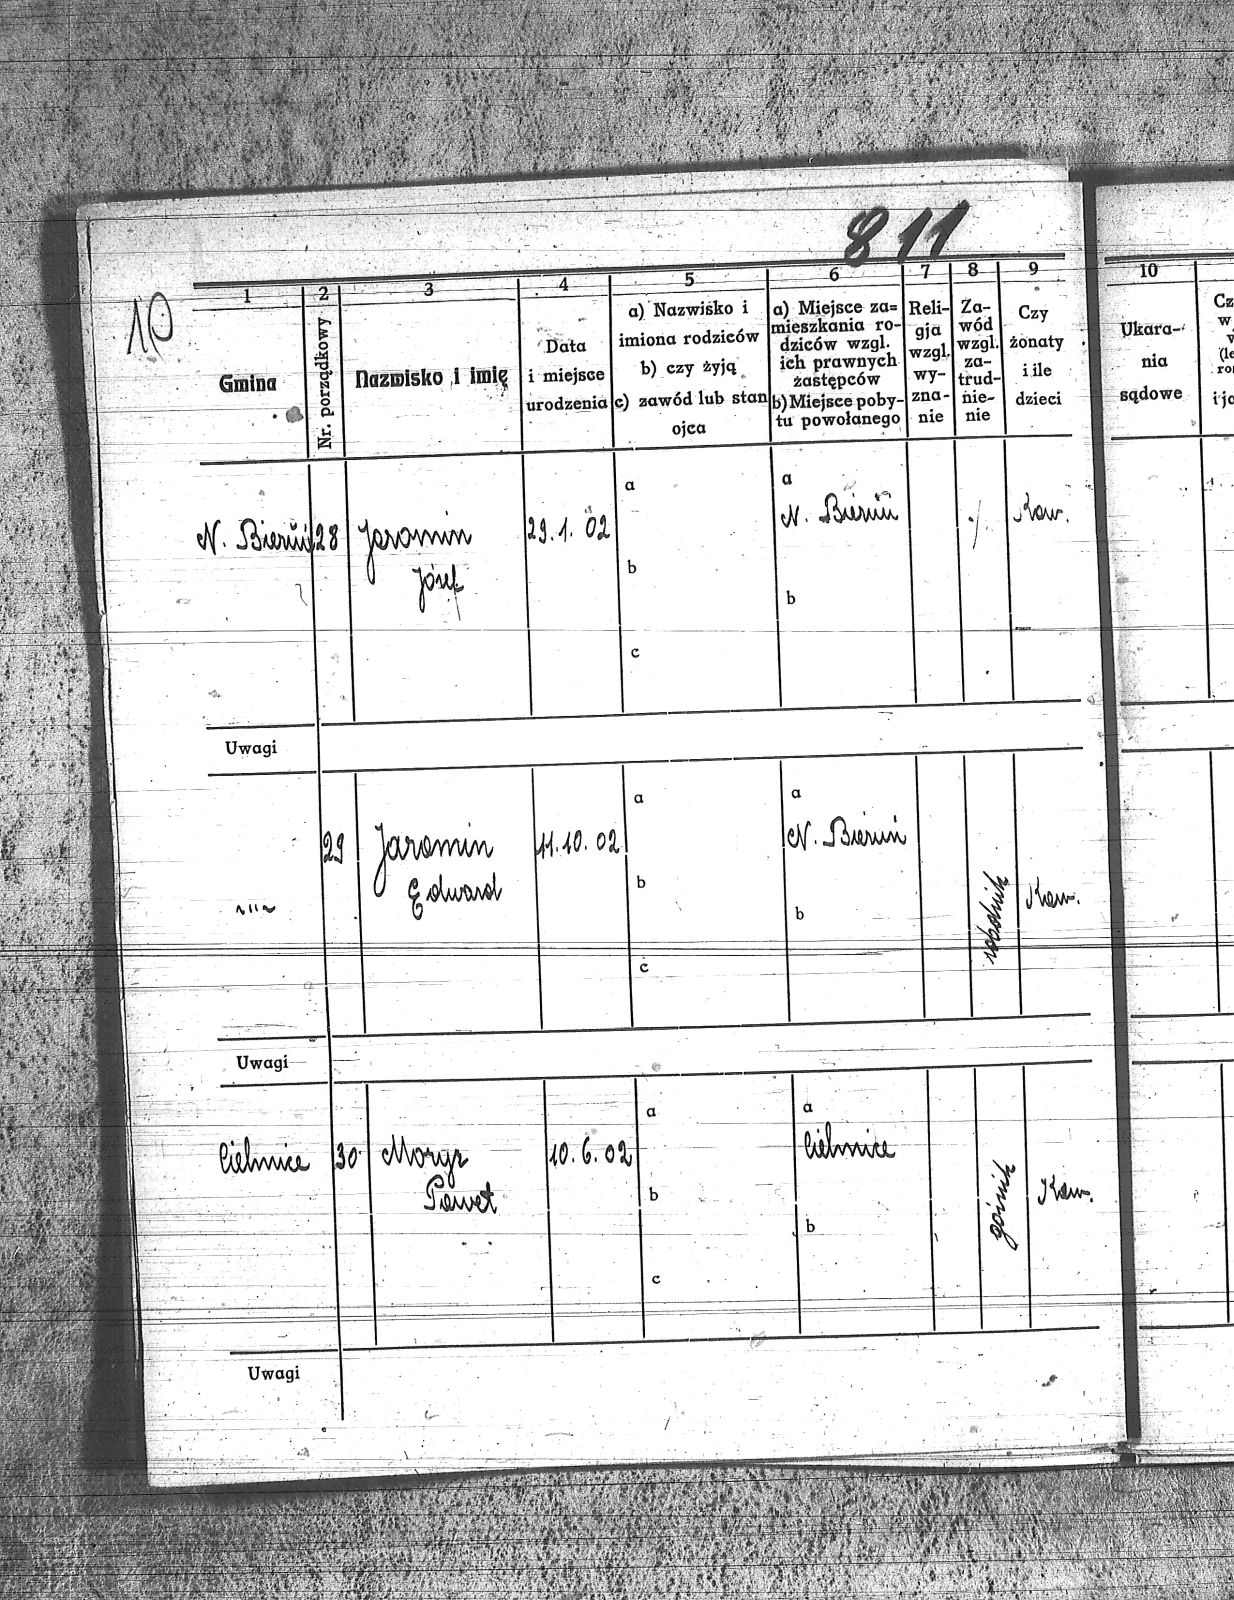 811
10
1 2 3 4 5 6 7 8 9 10
Gmina
Nr. porządkowy
Nazwisko i imię
Data
i miejsce
urodzenia
a) Nazwisko i
imiona rodziców
b) czy żyją
c) zawód lub stan
ojca
a) Miejsce za=
mieszkania ro-
dziców wzgl.
ich prawnych
zastępców
b) Miejsce poby-
tu powołanego
Reli-
gja
wzgl.
wy-
zna-
nie
Za-
wód
wzgl.
za-
trud-
nie-
nie
Czy
żonaty
i ile
dzieci
Ukara-
nia
sądowe
N. Bieruń 28 Jaromin 29.1.02 a a N. Bieruń Kaw.
Józef b b
c
Uwagi
29 Jaromin 11.10.02 a a N. Bieruń robotnik Kaw.
Edward b b
c
Uwagi
Cielmice 30 Moryz 10.6.02 a a Cielmice górnik Kaw.
Paweł b b
c
Uwagi